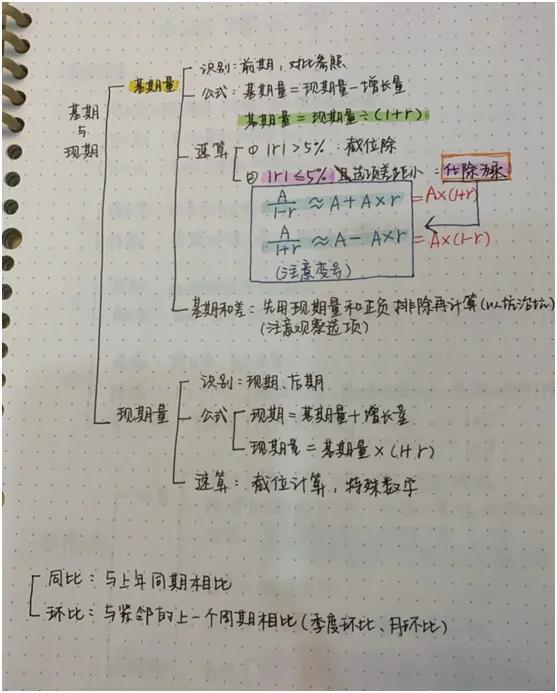 基期与现期
基期量
识别：前期，对比参照
公式：基期量＝现期量－增长量
基期量＝现期量÷(1+r)
速算
① |r|>5% 截位除
② |r|≤5% 且选项差距小：化除为乘
A/1-r ≈ A+A×r = A×(1+r)
A/1+r ≈ A-A×r = A×(1-r)
(注意变号)
基期和差：先用现期量和正负排除再计算(以坑治坑)
(注意观察选项)
现期量
识别：现期、后期
公式
现期＝基期量＋增长量
现期量＝基期量×(1+r)
速算：截位计算，特殊数字
同比：与上年同期相比
环比：与紧邻的上一个周期相比(季度环比、月环比)